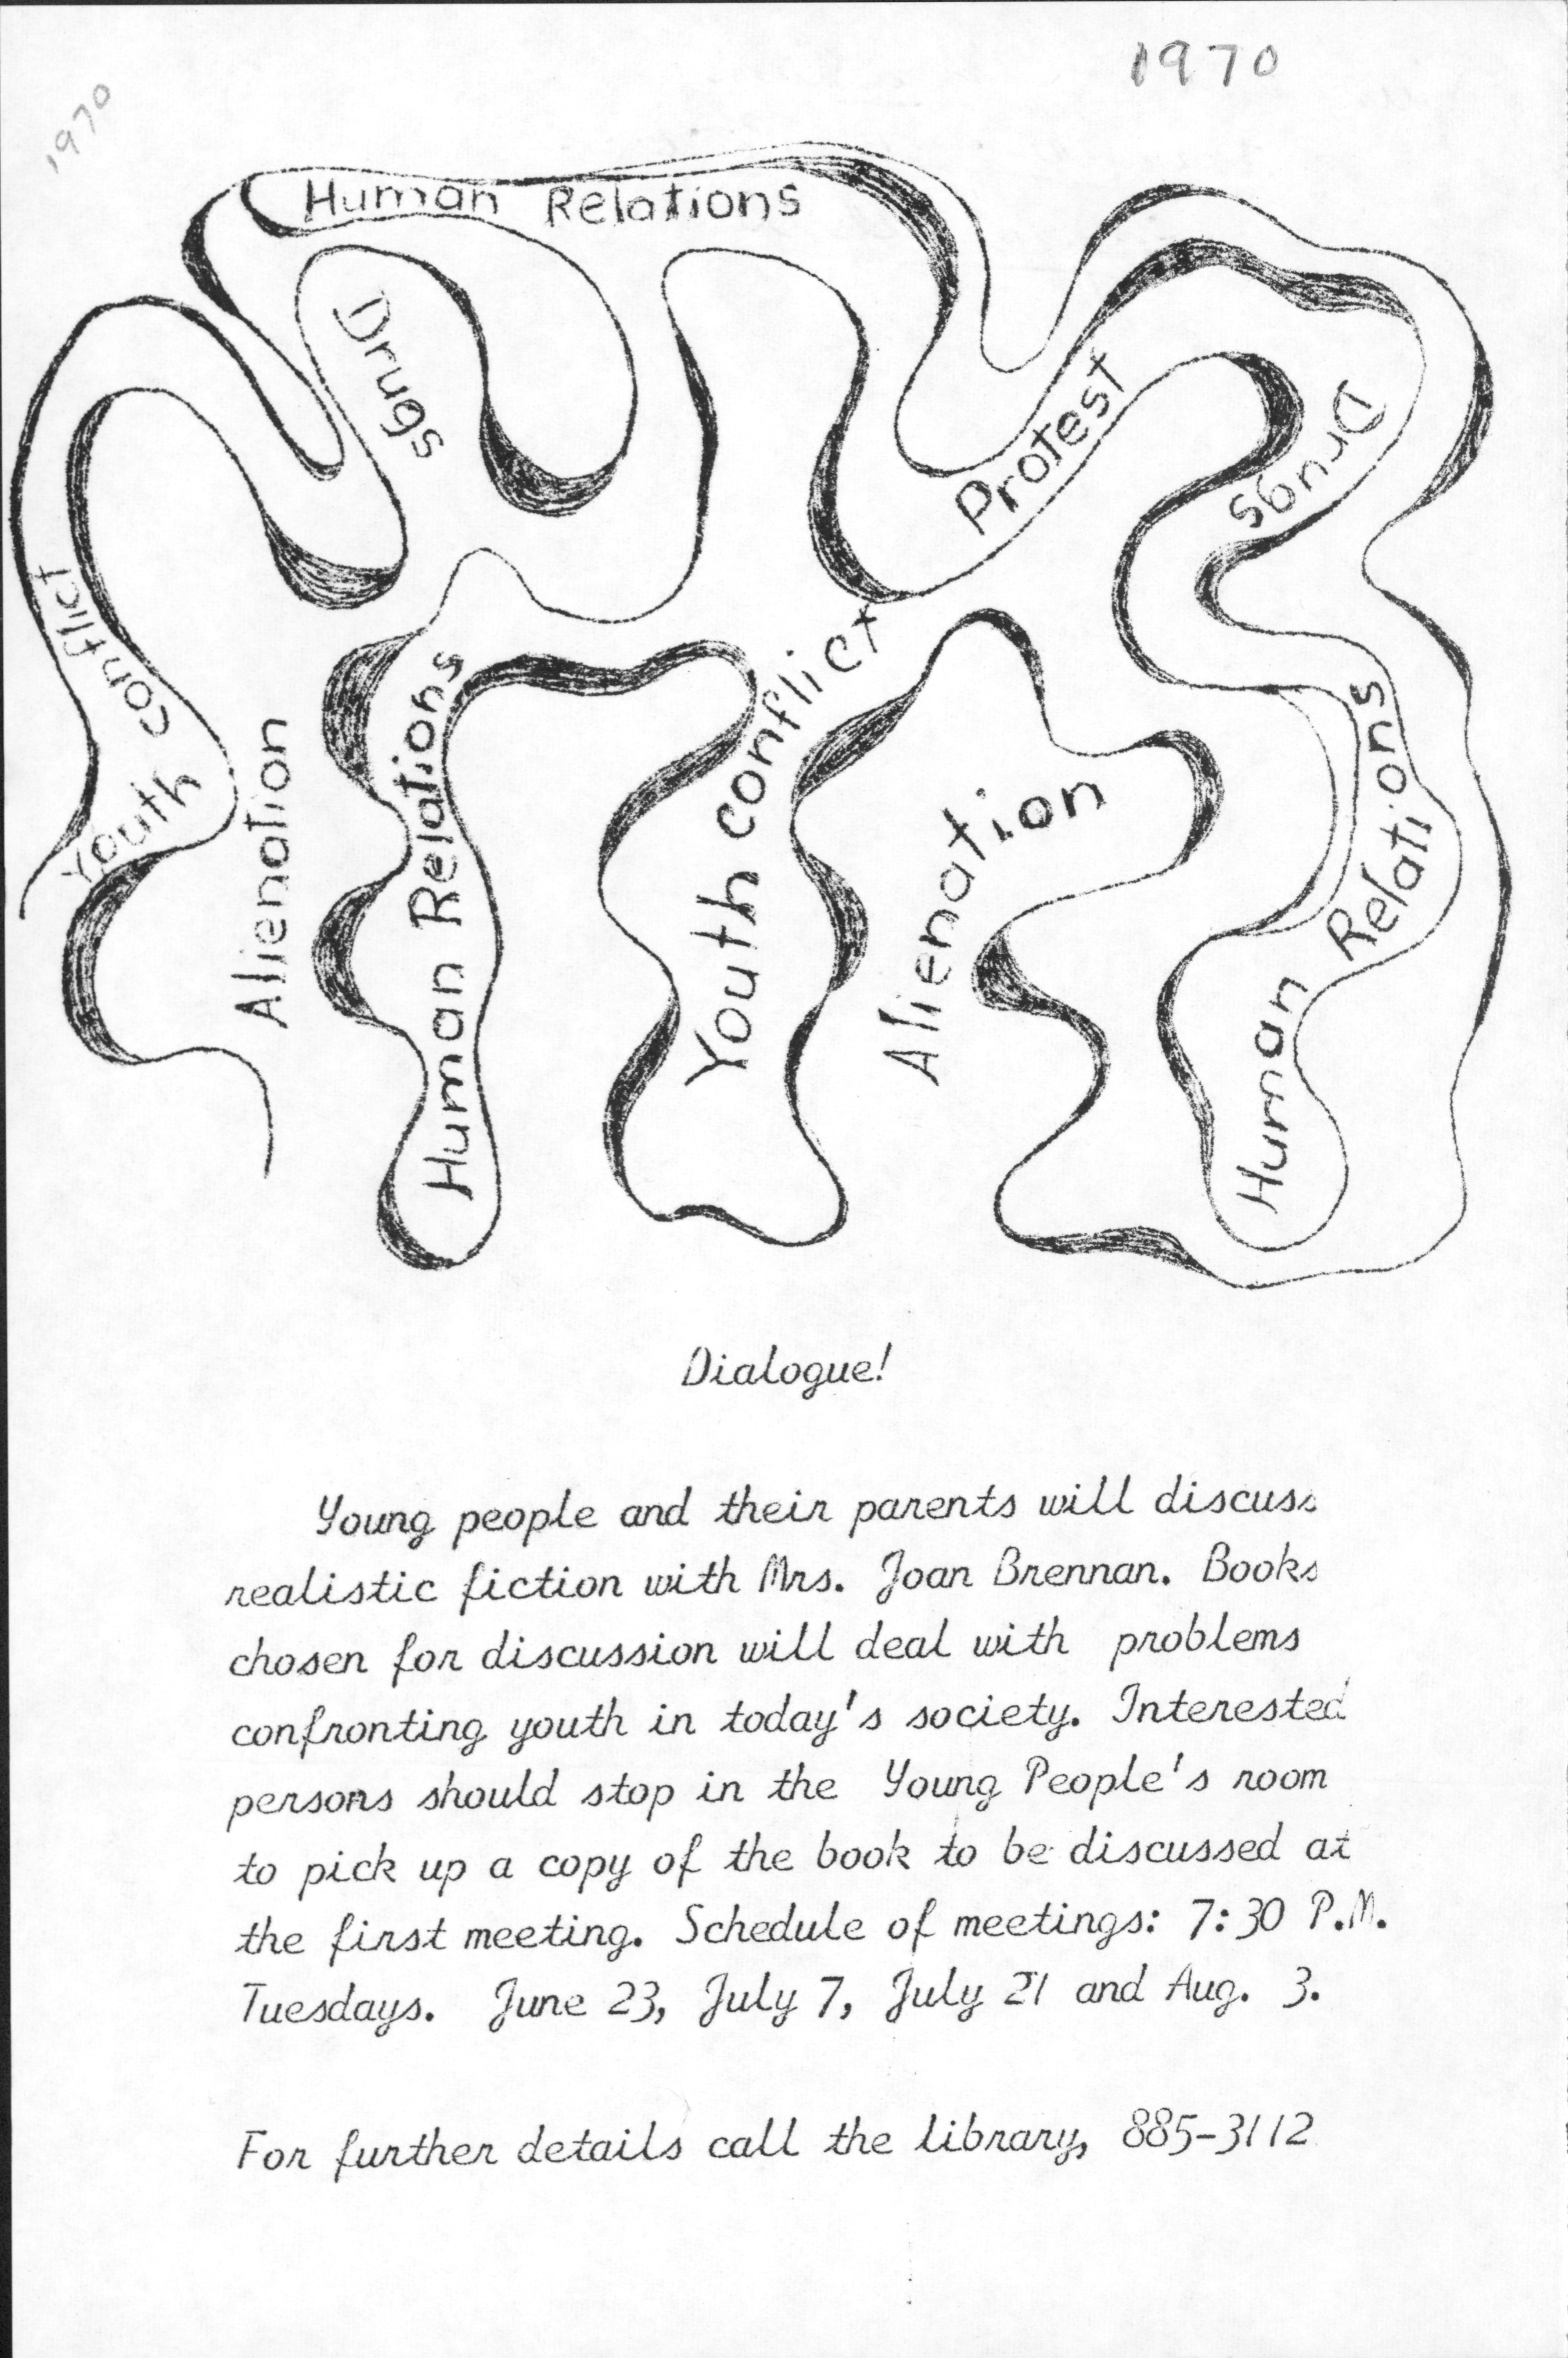 1970
1970
Human Relations
Drugs
Protest
Drugs
Youth conflict
Alienation
Human Relations
Youth conflict
Alienation
Human Relations
Dialogue!
Young people and their parents will discuss
realistic fiction with Mrs. Joan Brennan. Books
chosen for discussion will deal with problems
confronting youth in today's society. Interested
persons should stop in the Young People's room
to pick up a copy of the book to be discussed at
the first meeting. Schedule of meetings: 7:30 P.M.
Tuesdays. June 23, July 7, July 21 and Aug. 3.
For further details call the library, 885-3112